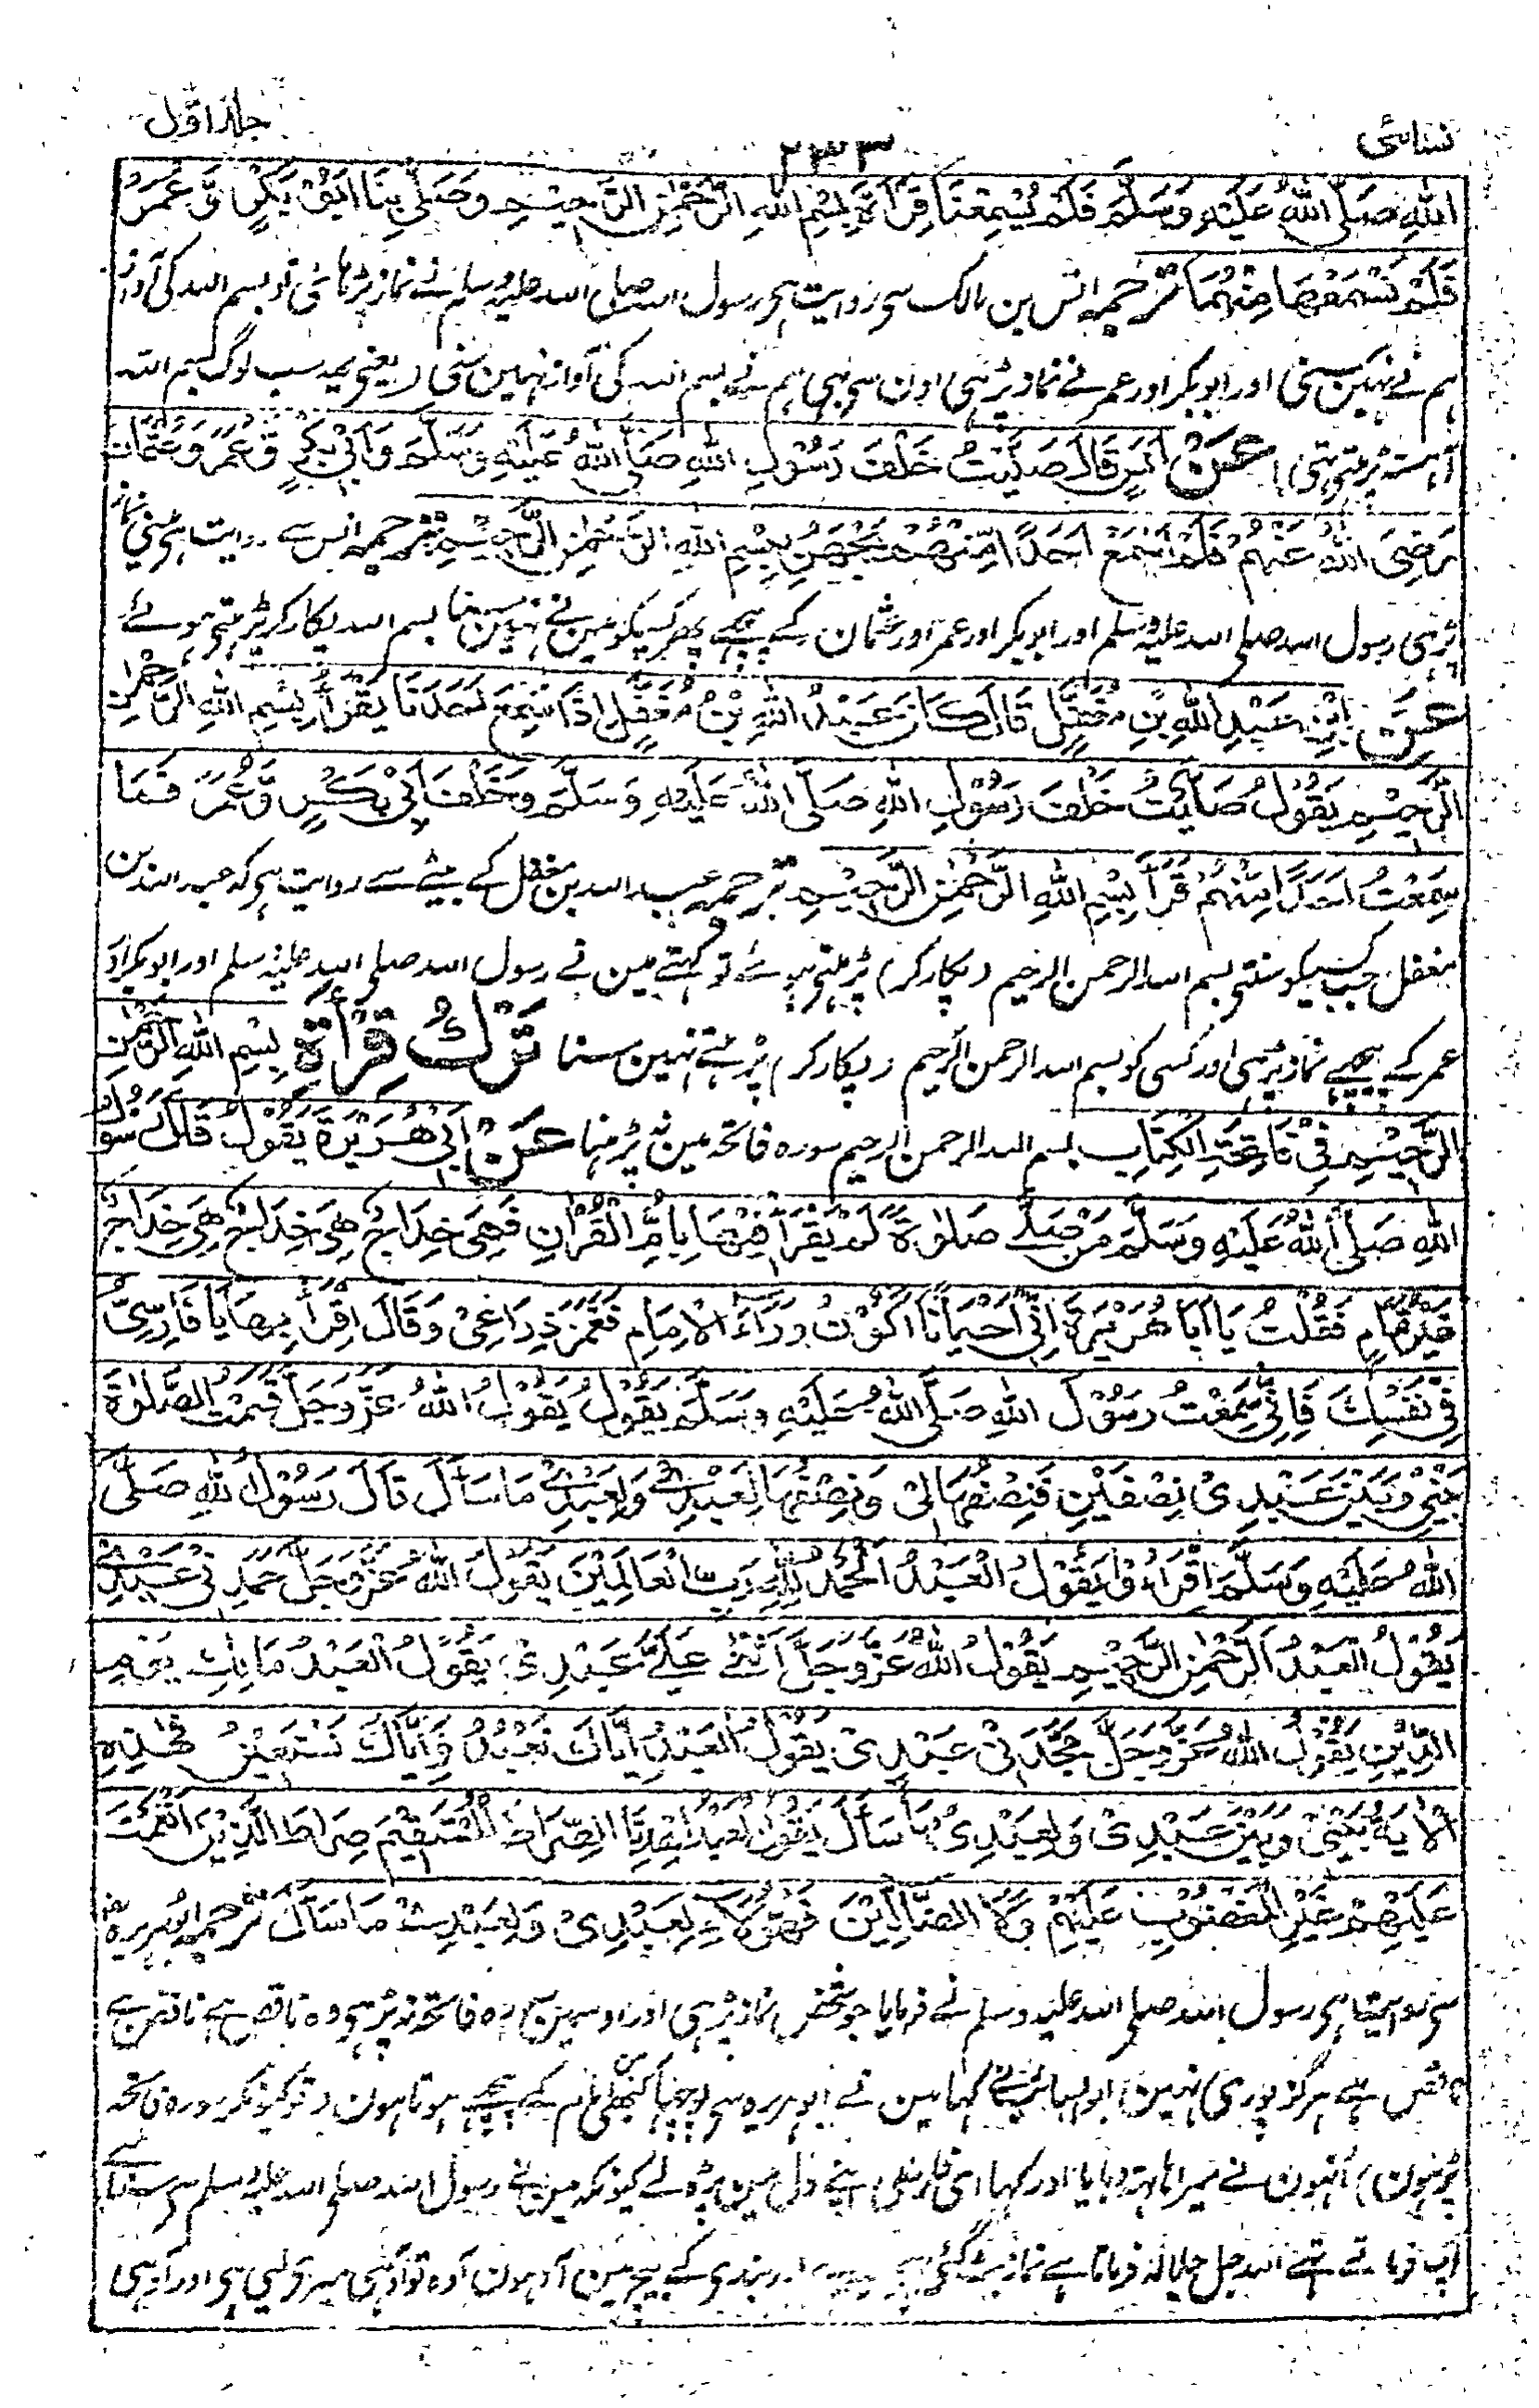 نسائی ۲۳۳ جلد اوّل
اللهِ صَلَّى اللهُ عَلَيْهِ وَسَلَّمَ فَلَمْ يُسْمِعْنَا قِرَأَةَ بِسْمِ اللهِ الرَّحْمٰنِ الرَّحِيْمِ وَصَلّٰى بِنَا اَبُوْ بَكْرٍ وَّعُمَرُ
فَلَمْ نَسْمَعْهَا مِنْهُمَا ترجمہ انس بن مالک سی روایت ہی رسول اللہ صلی اللہ علیہ وسلم نے نماز پڑھائی تو بسم اللہ کی آواز
ہم نے نہین سنی اور ابو بکر اور عمر نے نماز پڑہی اون سی بہی ہم نے بسم اللہ کی آواز نہین سنی (یعنی یہ سب لوگ بسم اللہ
آہستہ پڑہتی تہی) عَنْ اَنَسٍ قَالَ صَلَّيْتُ خَلْفَ رَسُوْلِ اللهِ صَلَّى اللهُ عَلَيْهِ وَسَلَّمَ وَاَبِيْ بَكْرٍ وَّعُمَرَ وَعُثْمَانَ
رَضِيَ اللهُ عَنْهُمْ فَلَمْ اَسْمَعْ اَحَدًا مِّنْهُمْ يَجْهَرُ بِبِسْمِ اللهِ الرَّحْمٰنِ الرَّحِيْمِ ترجمہ انس سے روایت ہی مینی نماز
پڑہی رسول اللہ صلی اللہ علیہ وسلم اور ابو بکر اور عمر اور عثمان کے پیچہے پہر کسیکو مین نے نہین سنا بسم اللہ پکار کر پڑہتی ہوئے
عَنِ ابْنِ عَبْدِ اللهِ بْنِ مُغَفَّلٍ قَالَ كَانَ عَبْدُ اللهِ بْنُ مُغَفَّلٍ اِذَا سَمِعَ اَحَدَنَا يَقْرَأُ بِسْمِ اللهِ الرَّحْمٰنِ
الرَّحِيْمِ يَقُوْلُ صَلَّيْتُ خَلْفَ رَسُوْلِ اللهِ صَلَّى اللهُ عَلَيْهِ وَسَلَّمَ وَخَلْفَ اَبِيْ بَكْرٍ وَّعُمَرَ فَمَا
سَمِعْتُ اَحَدًا مِّنْهُمْ قَرَأَ بِسْمِ اللهِ الرَّحْمٰنِ الرَّحِيْمِ ترجمہ عبد اللہ بن مغفل کے بیٹے سے روایت ہی کہ عبد اللہ بن
مغفل جب کسیکو سنتی بسم اللہ الرحمن الرحیم (پکار کر) پڑہتی ہوئے تو کہتے مین نے رسول اللہ صلی اللہ علیہ وسلم اور ابو بکر اور
عمر کے پیچہے نماز پڑہی اور کسی کو بسم اللہ الرحمن الرحیم (پکار کر) پڑہتے نہین سنا تَرْكُ قِرْأَةِ بِسْمِ اللهِ الرَّحْمٰنِ
الرَّحِيْمِ فِيْ فَاتِحَةِ الْكِتَابِ بسم اللہ الرحمن الرحیم سورہ فاتحہ مین نہ پڑہنا عَنْ اَبِيْ هُرَيْرَةَ يَقُوْلُ قَالَ رَسُوْلُ
اللهِ صَلَّى اللهُ عَلَيْهِ وَسَلَّمَ مَنْ صَلّٰى صَلٰوةً لَمْ يَقْرَأْ فِيْهَا بِاُمِّ الْقُرْاٰنِ فَهِيَ خِدَاجٌ هِيَ خِدَاجٌ هِيَ خِدَاجٌ
غَيْرُ تَمَامٍ فَقُلْتُ يَا اَبَا هُرَيْرَةَ اِنِّيْ اَحْيَانًا اَكُوْنُ وَرَاءَ الْاِمَامِ فَغَمَزَ ذِرَاعِيْ وَقَالَ اِقْرَأْ بِهَا يَا فَارِسِيُّ
فِيْ نَفْسِكَ فَاِنِّيْ سَمِعْتُ رَسُوْلَ اللهِ صَلَّى اللهُ عَلَيْهِ وَسَلَّمَ يَقُوْلُ يَقُوْلُ اللهُ عَزَّ وَجَلَّ قَسَمْتُ الصَّلٰوةَ
بَيْنِيْ وَبَيْنَ عَبْدِيْ نِصْفَيْنِ فَنِصْفُهَا لِيْ وَنِصْفُهَا لِعَبْدِيْ وَلِعَبْدِيْ مَا سَأَلَ قَالَ رَسُوْلُ اللهِ صَلَّى
اللهُ عَلَيْهِ وَسَلَّمَ اِقْرَءُوْا يَقُوْلُ الْعَبْدُ اَلْحَمْدُ لِلّٰهِ رَبِّ الْعَالَمِيْنَ يَقُوْلُ اللهُ عَزَّ وَجَلَّ حَمِدَنِيْ عَبْدِيْ
يَقُوْلُ الْعَبْدُ اَلرَّحْمٰنِ الرَّحِيْمِ يَقُوْلُ اللهُ عَزَّ وَجَلَّ اَثْنٰى عَلَيَّ عَبْدِيْ يَقُوْلُ الْعَبْدُ مَالِكِ يَوْمِ
الدِّيْنِ يَقُوْلُ اللهُ عَزَّ وَجَلَّ مَجَّدَنِيْ عَبْدِيْ يَقُوْلُ الْعَبْدُ اِيَّاكَ نَعْبُدُ وَاِيَّاكَ نَسْتَعِيْنُ فَهٰذِهِ
الْاٰيَةُ بَيْنِيْ وَبَيْنَ عَبْدِيْ وَلِعَبْدِيْ مَا سَأَلَ يَقُوْلُ الْعَبْدُ اِهْدِنَا الصِّرَاطَ الْمُسْتَقِيْمَ صِرَاطَ الَّذِيْنَ اَنْعَمْتَ
عَلَيْهِمْ غَيْرِ الْمَغْضُوْبِ عَلَيْهِمْ وَلَا الضَّالِّيْنَ فَهٰؤُلَاءِ لِعَبْدِيْ وَلِعَبْدِيْ مَا سَأَلَ ترجمہ ابو ہریرہ
سی روایت ہی رسول اللہ صلی اللہ علیہ وسلم نے فرمایا جو شخص نماز پڑہی اور اوسین سورہ فاتحہ نہ پڑہی وہ ناقص ہے ناقص ہے
ناقص ہے ہرگز پوری نہین ابو السائب نے کہا مین نے ابو ہریرہ سی پوچہا کبہی مین امام کے پیچہے ہوتا ہون (تو کیونکر سورہ فاتحہ
پڑہون) اُنہون نے میرا ہاتہ دبایا اور کہا ای فارسی اپنے دل مین پڑہ لے کیونکہ مین نے رسول اللہ صلی اللہ علیہ وسلم سی سنا ہے
آپ فرماتے تہے اللہ جل جلالہ فرماتا ہے نماز بٹ گئی ہے اور بندی کے بیچ مین آدہون آدہ تو آدہی میری لیی ہی اور آدہی